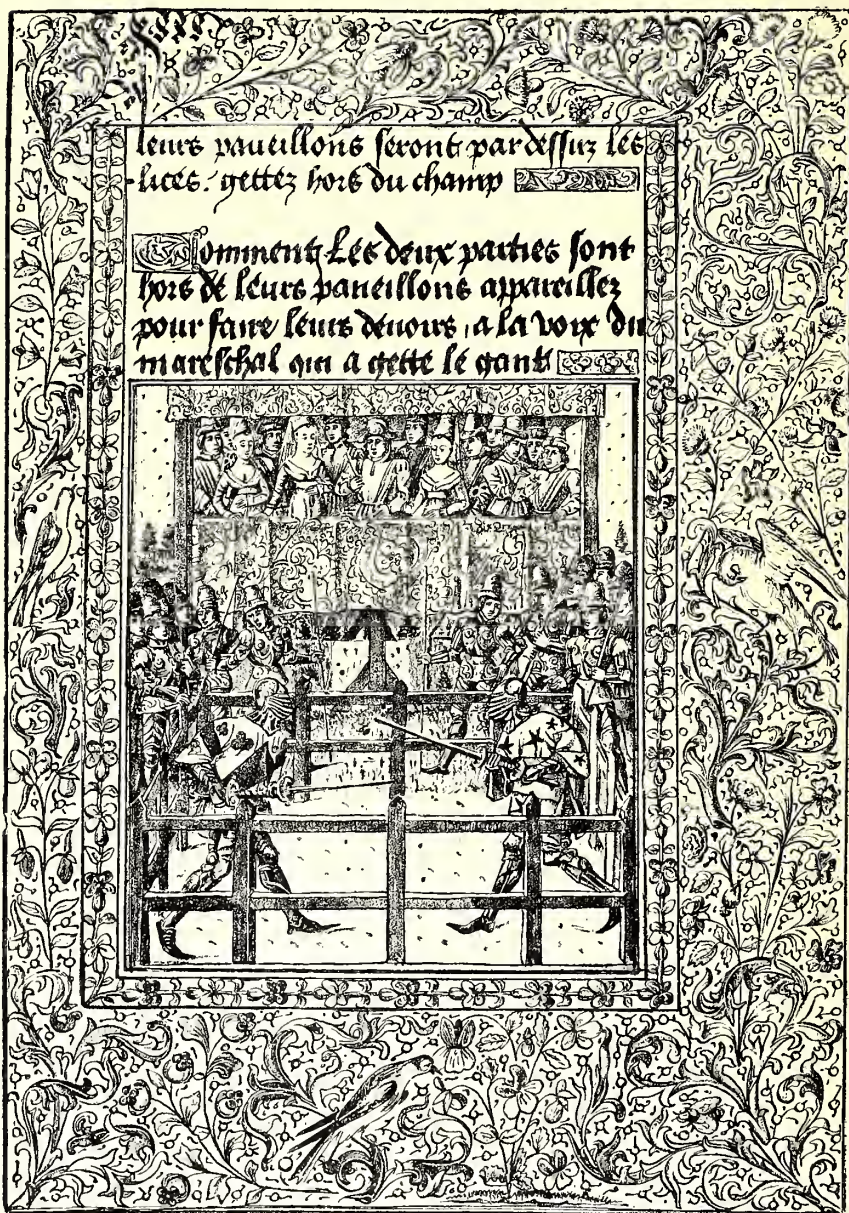 leurs paveillons seront par dessuz les
lices. gettez hors du champ
Comment Les deux parties sont
hors de leurs paveillons appareillez
pour faire leurs devoirs, a la voix du
mareschal qui a gette le gant